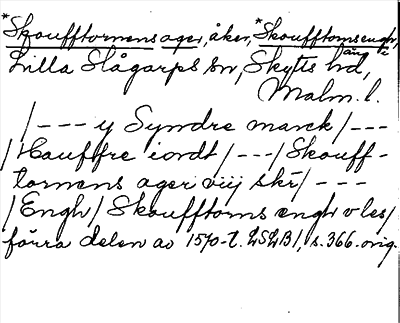 *Skoufftormens ager, åker, *Skoufftomsengh, äng i
Lilla Slågarps sn, Skytts hd,
Malm. l.
/--- y Syndre marck/---
/Hauffre iordt/---/Skouff-
tormens ager viij skr/---
/Engh/Skoufftoms engh v les/
förra delen av 1570-t. LSLB1, s. 366. orig.